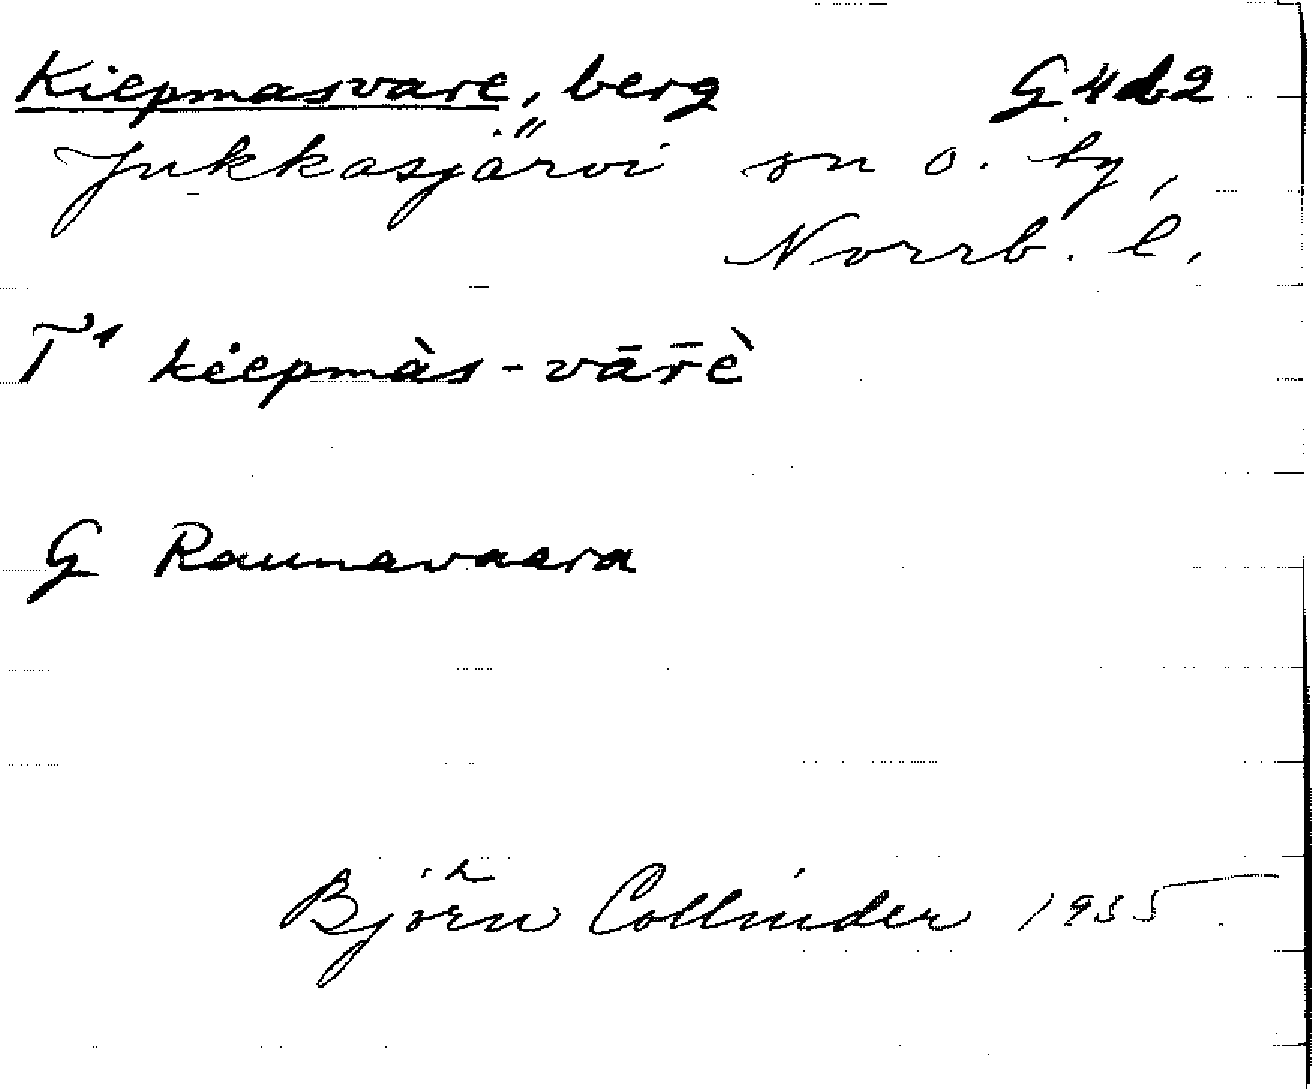 Kiepmasvare, berg G4d2
Jukkasjärvi sn o. by,
Norrb. l.
T¹ kiepmàs-vār̄è
G Raunavaara
Björn Collinder 1935